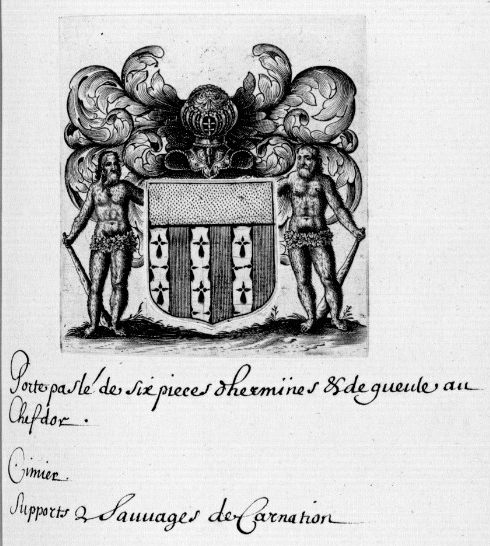 Porte paslé de six pieces dhermines & de gueule au
Chef dor.
Cimier
Supports 2 Sauvages de Carnation